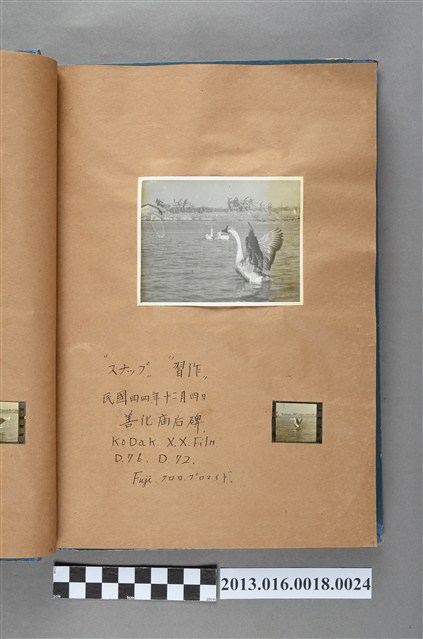 "スナップ" "習作"
民國四四年十二月四日
善化廟后碑
KoDak. X.X. Film
D.76. D.72.
Fuji. クロロ.ブロマイド.
2013.016.0018.0024